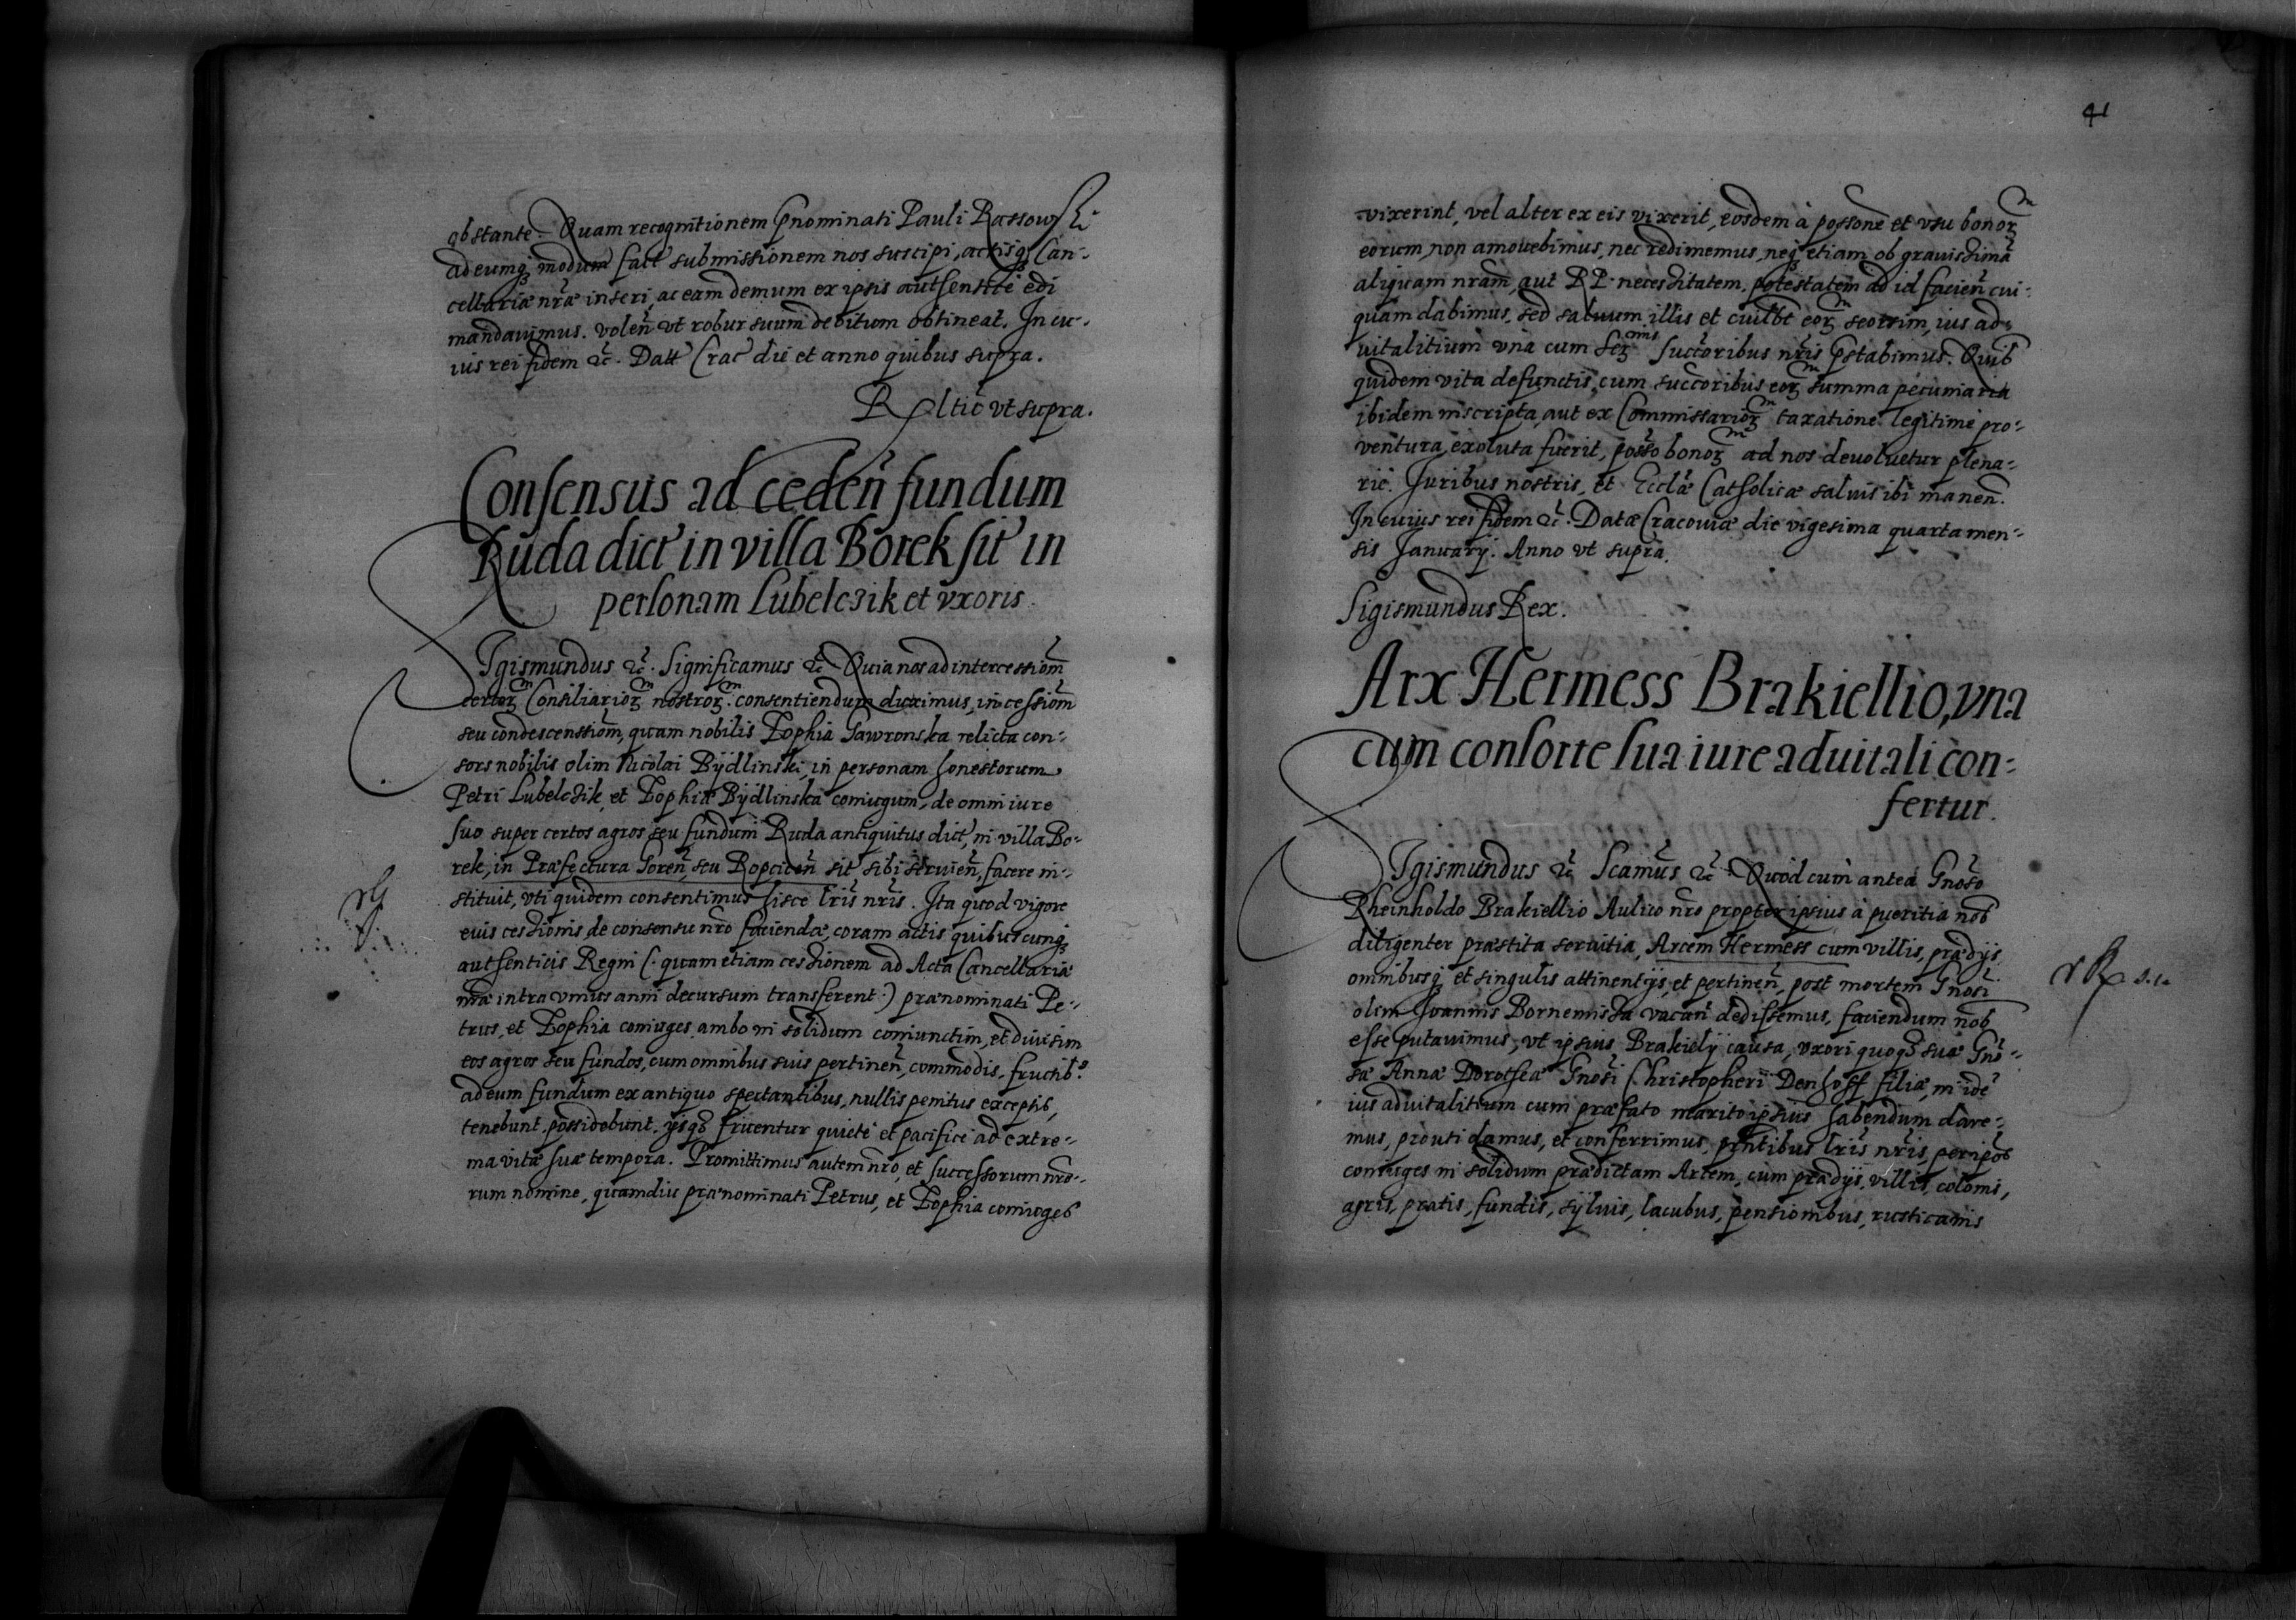 obstante. Quam recognitionem p̄nominati Pauli Rassowski
ad eumq₃ modum fact̄ submissionem nos suscipi, actisq₃ Can-
cellariæ nr̄æ inseri, ac eam demum ex ipsis authenticè edi
mandavimus. volen̄ vt robur suum debitum obtineat. In cu-
ius rei fidem &c̄. Datt Crac̄ die et anno quibus supra.
R ltic̄ vt supra.
Consensus ad ceden̄ fundum
Ruda dict̄ in villa Borek sit̄ in
personam Lubelczik et vxoris.
Sigismundus &c̄. Significamus &c̄. Quia nos ad intercessiom̄
certoꝝ Consiliarioꝝ nostroꝝ consentiendum duximus, in cessiom̄
seu condescensiom̄, quam nobilis Zophia Gawronska relicta con-
sors nobilis olim Nicolai Bydlinski, in personam honestorum
Petri Lubelczik et Zophiæ Bydlinska coniugum, de omni iure
suo super certos agros seu fundum Ruda antiquitus dict̄, in villa Bo-
rek, in Præfectura Goren̄, seu Ropciten̄ sit̄ sibi servien̄, facere in-
stituit, vti quidem consentimus hisce lrīs nrīs. Ita quod vigore
euis cessionis de consensu nrō faciendæ, coram actis quibuscunq₃
authenticis Regni (: quam etiam cessionem ad Acta Cancellariæ
nrāe intra vnius anni decursum transferent :) prænominati Pe-
trus, et Zophia coniuges ambo in solidum coniunctim, et divisim
eos agros seu fundos, cum omnibus suis pertinen̄, commodis, fructib⁹
ad eum fundum ex antiquo spectantibus, nullis penitus exceptis,
tenebunt, possidebunt, ysq₃ fruentur quietè et pacificè ad extre-
ma vitæ suæ tempora. Promittimus autem nrō, et successorum nrō-
rum nomine, quamdiu prænominati Petrus, et Zophia coniuges
41
vixerint, vel alter ex eis vixerit, eosdem à possone et vsu bonoꝝ
eorum non amovebimus, nec redimemus, neq₃ etiam ob gravissimā
aliquam nrām, aut RP. necessitatem, potestatem ad id facien̄ cui-
quam dabimus, sed salvum illis et cuilbt eoꝝ seorsim, ius ad-
vitalitium vna cum Serᵐⁱˢ succoribus nrīs p̄stabimus. Quib
quidem vita defunctis, cum succoribus eoꝝ summa pecuniaria
ibidem inscripta, aut ex Commissarioꝝ taxatione legitimè pro-
ventura, exoluta fuerit, posso bonoꝝ ad nos devoluetur plena-
riè. Iuribus nostris, et Ecclæ Catholicæ salvis ibi manen̄.
In cuius rei fidem &c̄. Datæ Cracoviæ die vigesima quarta men-
sis January. Anno vt supra.
Sigismundus Rex.
Arx Hermess Brakiellio, vna
cum consorte sua iure advitali con-
fertur.
Sigismundus &c̄ Scamūs &c̄. Quod cum antea Gnoso
Rheinholdo Brakiellio Aulico nrō propter ipsius à pueritia nob
diligenter præstita servitia, Arcem Hermess cum villis, prædijs
omnibusq₃ et singulis attinentijs, et pertinen̄, post mortem Gnosi
olim Ioannis Bornemissa vacan̄ dedissemus, faciendum nob
esse putavimus, vt ipsius Brakiely causa, vxori quoq₃ suæ Gno-
sæ Annæ Dorotheæ Gnosi Christopheri Denhoff filiæ, in idē
ius advitalitium cum præfato marito ipsius habendum dare-
mus, prouti damus, et conferrimus, pn̄tibus lrīs nrīs, per ipos
coniuges in solidum prædictam Arcem, cum prædijs, villis, colonis,
agris, pratis, fundis, sylvis, lacubus, pensionibus, rusticanis